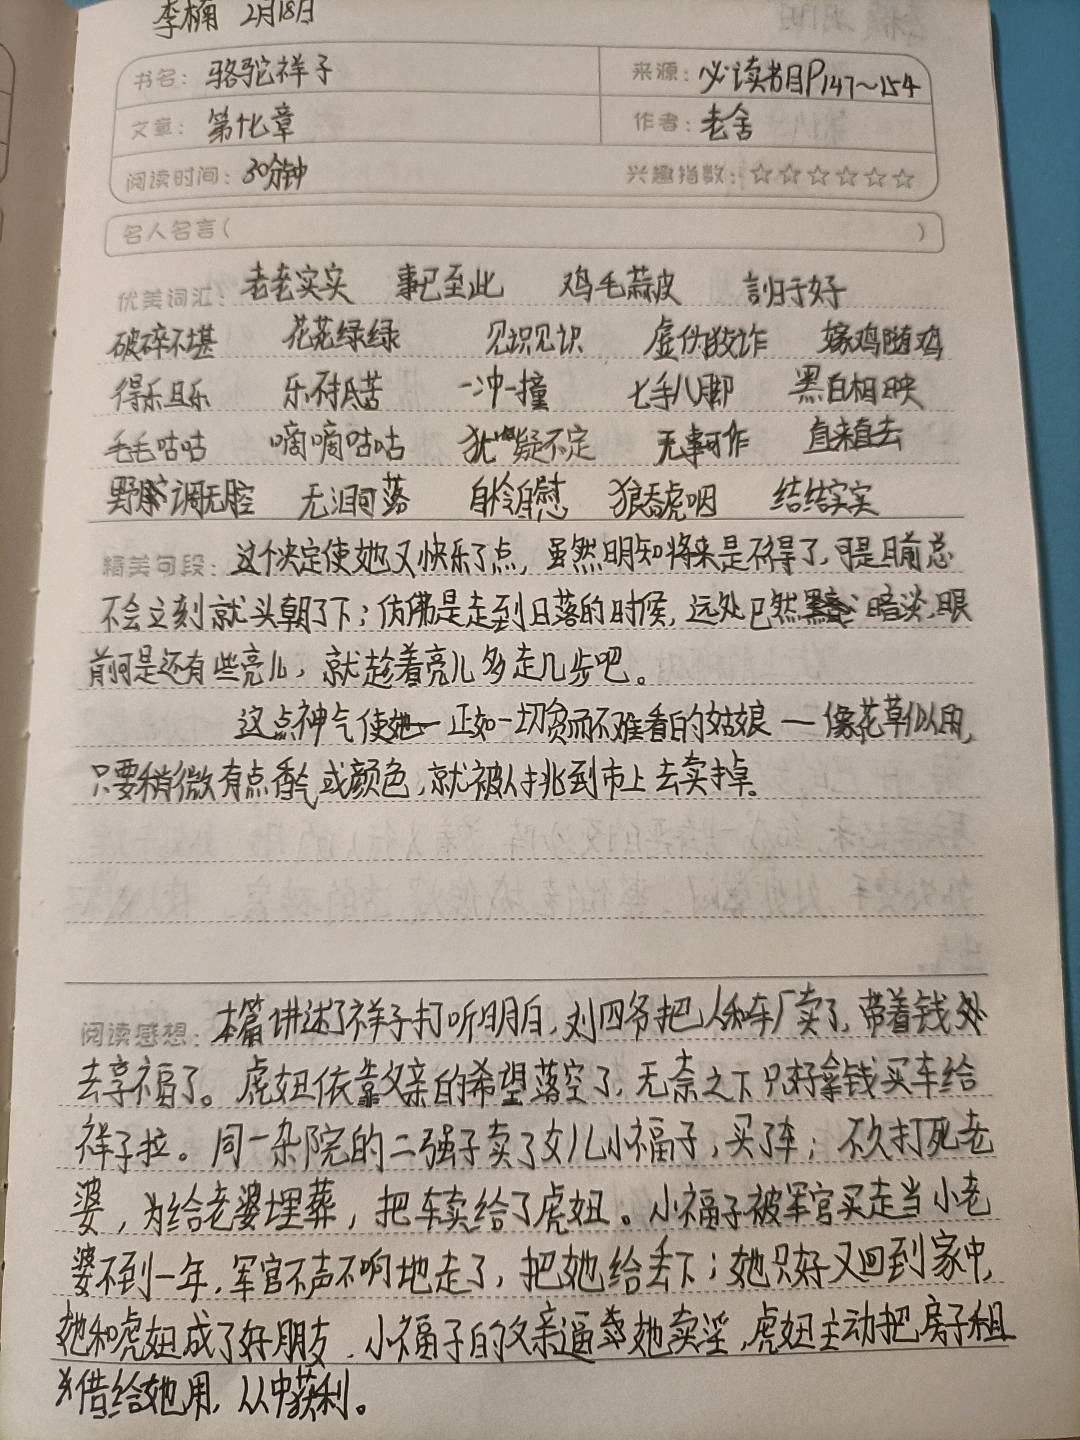 李楠 2月18日
书名：骆驼祥子 来源：必读书目P147～154
文章：第十七章 作者：老舍
阅读时间：30分钟 兴趣指数：☆☆☆☆☆☆
名人名言（ ）
优美词汇：老老实实 事已至此 鸡毛蒜皮 言归于好
破碎不堪 花花绿绿 见识见识 虚伪狡诈 嫁鸡随鸡
得乐且乐 乐不抵苦 一冲一撞 七手八脚 黑白相映
毛毛咕咕 嘀嘀咕咕 犹疑不定 无事可作 直来直去
野腔调无腔 无泪可落 自怜自慰 狼吞虎咽 结结实实
精美句段：这个决定使她又快乐了点，虽然明知将来是不得了，可是目前总
不会立刻就头朝了下；仿佛是走到日落的时候，远处已然暗淡，眼
前可是还有些亮儿，就趁着亮儿多走几步吧。
这点神气使她—正如一切贫而不难看的姑娘—像花草似的，
只要稍微有点香气或颜色，就被人挑到市上去卖掉。
阅读感想：本篇讲述了祥子打听明白，刘四爷把人和车厂卖了，带着钱外
去享福了。虎妞依靠父亲的希望落空了，无奈之下只好拿钱买车给
祥子拉。同一杂院的二强子卖了女儿小福子，买了车；不久打死老
婆，为给老婆埋葬，把车卖给了虎妞。小福子被军官买走当小老
婆不到一年，军官不声不响地走了，把她给丢下；她只好又回到家中，
她和虎妞成了好朋友。小福子的父亲逼她卖淫，虎妞主动把房子租
借给她用，从中获利。